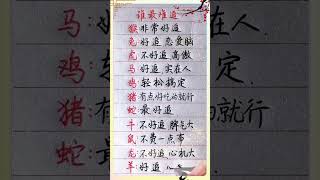 谁最难追
猴:非常好追
兔:好追 恋爱脑
虎:不好追 高傲
马:好追 实在人
鸡:轻松搞定
猪:有点好吃的就行
蛇:最好追
牛:不好追 脾气大
鼠:不费一点事
龙:不好追 心机大
羊:好追 心